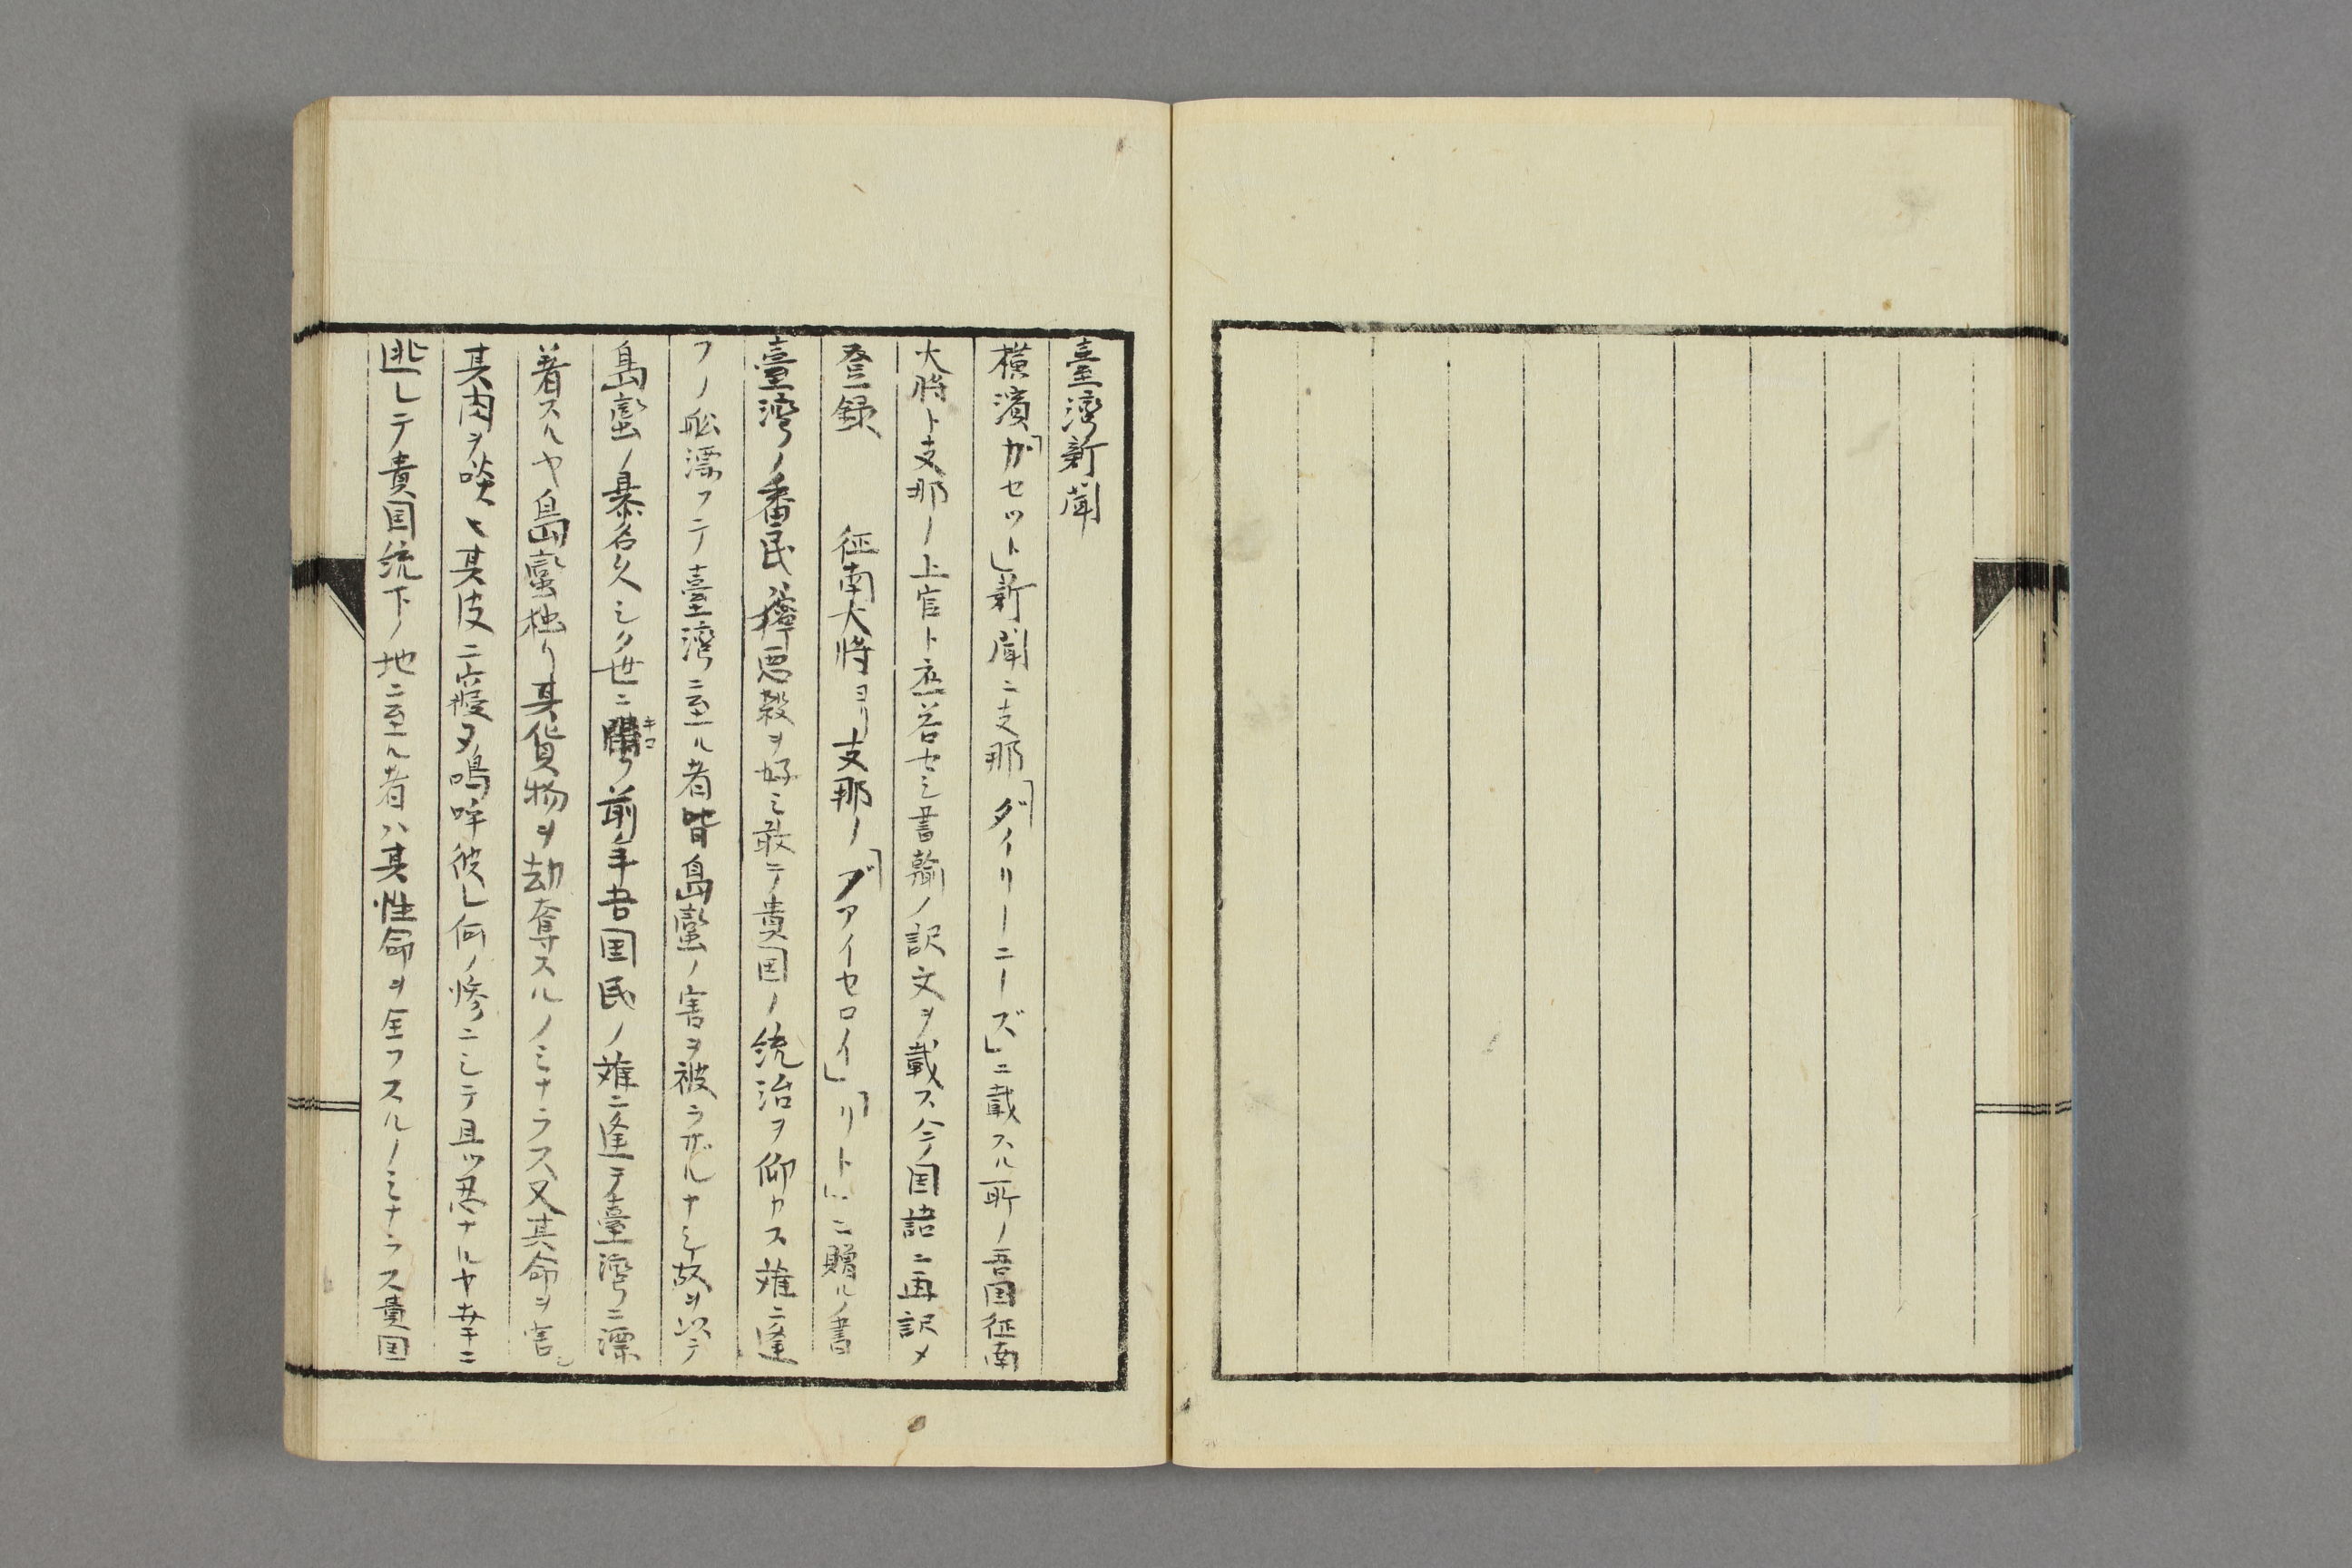 臺灣新聞
横濱「ガセット」新聞ニ支那「ダイリーニーズ」ニ載スル所ノ吾国征南
大將ト支那ノ上官ト應答セシ書翰ノ訳文ヲ載ス今国語ニ再訳メ
登録　征南大將ヨリ支那ノ「ブアイセロイ」「リト」ニ贈ルノ書
臺灣ノ番民獰悪殺ヲ好ミ敢テ貴国ノ統治ヲ仰カス難ニ逢
フノ舩漂フテ臺灣ニ至ル者皆島蠻ノ害ヲ被ラザルナシ故ヲ以テ
島蠻ノ暴名久シク世ニ聞キコ前年吾国民ノ難ニ逢テ臺灣ニ漂
着スルヤ島蠻独リ其貨物ヲ劫奪スルノミナラス又其命ヲ害シ
其肉ヲ啖ヒ其皮ニ寝タ嗚呼彼レ何ノ惨ニシテ且ツ忍ナルヤ幸ニ
逃レテ貴国統下ノ地ニ至ル者ハ其性命ヲ全フスルノミナラス貴国